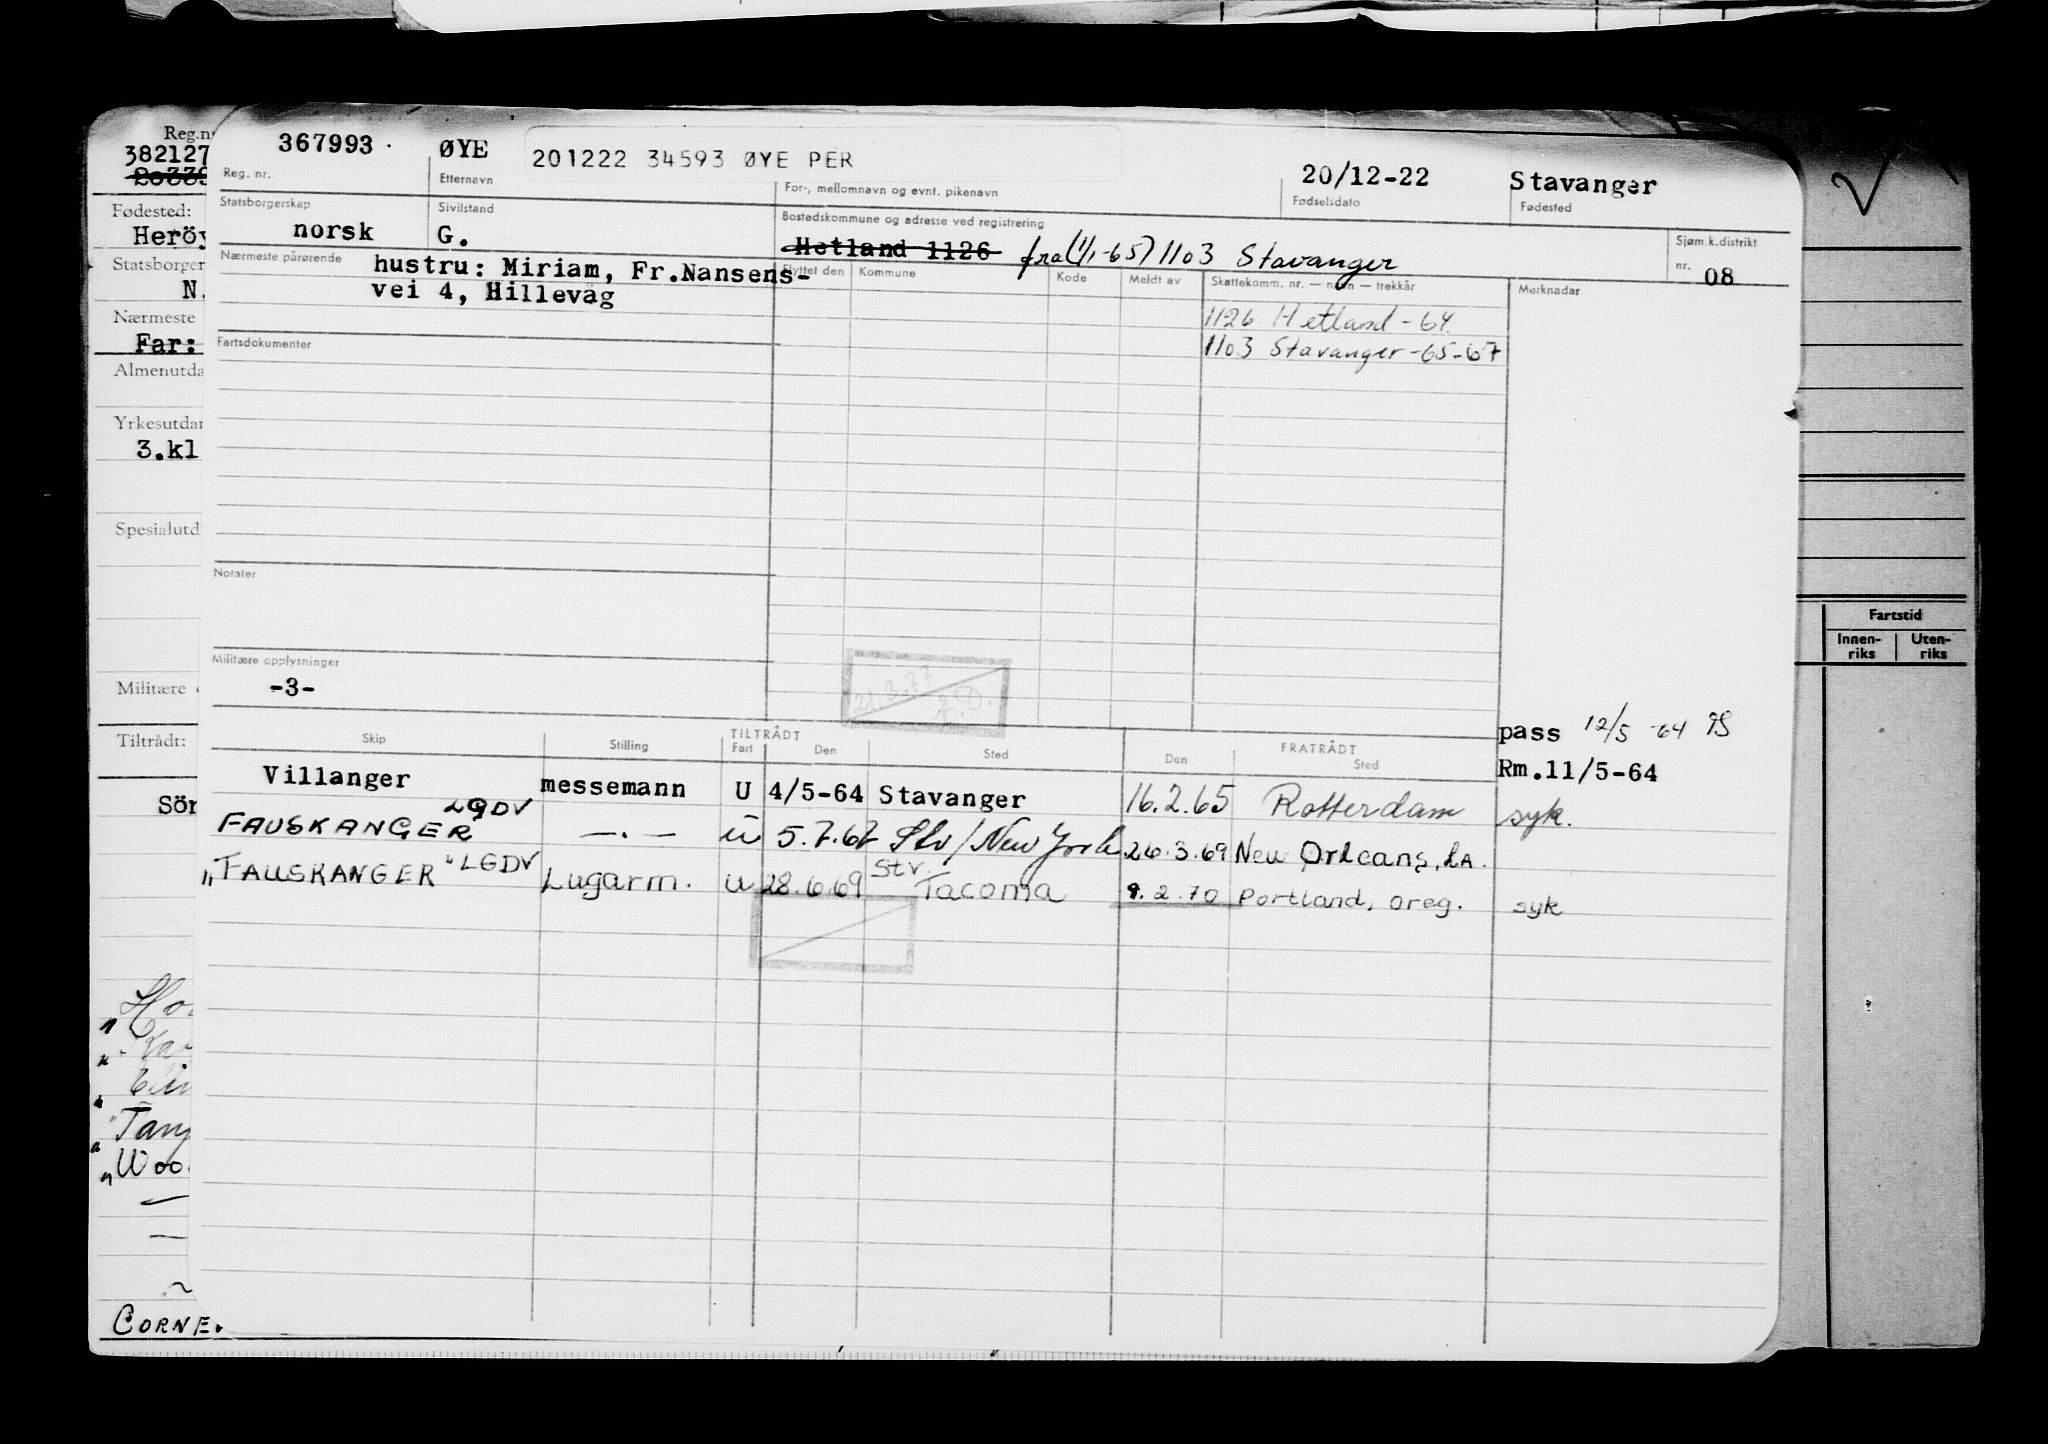 Reg.n
382127
Fødested:
Heröy
Statsborger
N.
Nærmeste
Far:
Almenutda
Yrkesutdan
3.kl
Spesialutd
Militære
Tiltrådt:
Sör
Tang
Woo
CORNE
367993 ØYE 201222 34593 ØYE PER 20/12-22 Stavanger
Reg. nr. Etternavn For-, mellomnavn og evnt. pikenavn Fødselsdato Fødested
Statsborgerskap Sivilstand Bostedskommune og adresse ved registrering Sjøm.k.distrikt
norsk G. Hetland 1126 fra (1/1-65) 1103 Stavanger nr. 08
Nærmeste pårørende hustru: Miriam, Fr.Nansens- Flyttet den Kommune Kode Meldt av Skattekomm. nr. — navn — trekkår Merknader
vei 4, Hillevåg
1126 Hetland -64
Fartsdokumenter 1103 Stavanger -65-67
Notater
Militære opplysninger
-3-
21.3.77
pass 12/5 -64
Skip Stilling TILTRÅDT Fart Den Sted FRATRÅDT Den Sted
Rm.11/5-64
Villanger messemann U 4/5-64 Stavanger 16.2.65 Rotterdam syk.
FAUSKANGER LGDV —.— U 5.7.67 Stv/New York 26.3.69 New Orleans, LA.
"FAUSKANGER" LGDV Lugarm. U 28.6.69 Stv. Tacoma 9.2.70 Portland, Oreg. syk
Fartstid
Innen-
riks
Uten-
riks